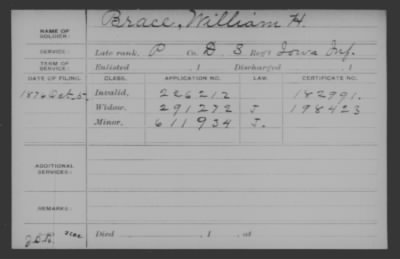 NAME OF SOLDIER: Brace, William H.
SERVICE: Late rank, P Co. D 3 Reg't Iowa Inf.
TERM OF SERVICE: Enlisted , 1 Discharged , 1
DATE OF FILING. CLASS. APPLICATION NO. LAW. CERTIFICATE NO.
1876 Oct. 5. Invalid, 226212 182991.
Widow, 291272 J 198423
Minor, 611934 J.
ADDITIONAL SERVICES:
REMARKS:
Died , 1 , at